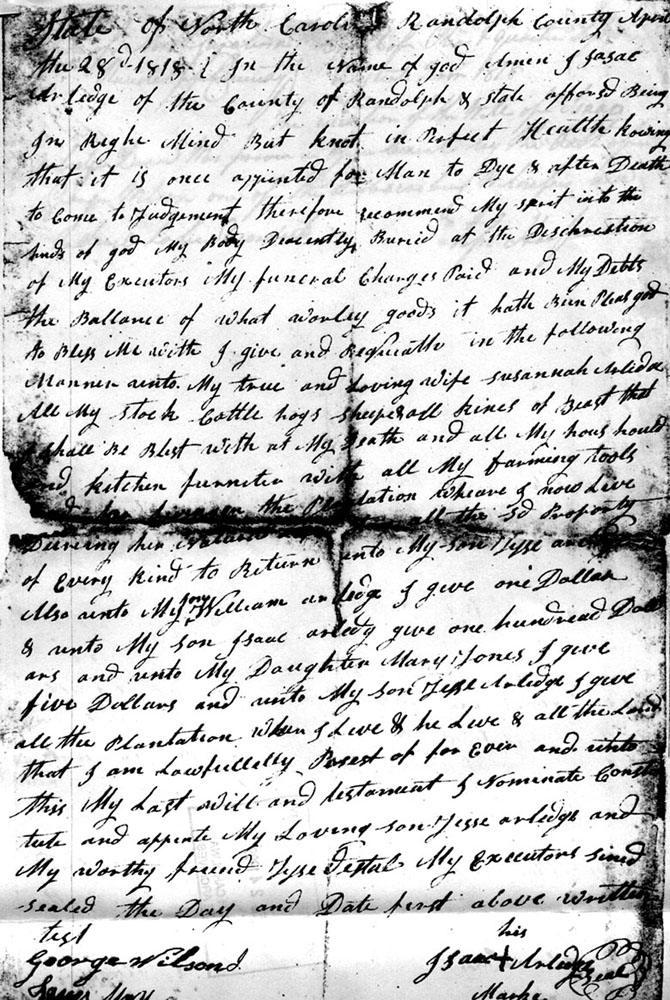 State of North Carolina Randolph County April
the 28d 1818 { In the Name of god Amen I Isaac
Arledge of the County of Randolph & state afforsd Being
In Reghe Mind But knot in Perfect Health knowing
that it is once appinted for Man to Dye & after Death
to Come to Judgement therefore recommend My sprit into the
hnds of god My Body Deacently Buried at the Deschrestion
of My Executors My funeral Charges Paid and My Debts
the Ballance of what worley goods it hath Bin Pleas god
to Bless Me with I give and Bequeathe in the following
Manner unto My true and Loving wife susannah Arledge
All My stock Cattle hogs sheepe & all kines of Beast that
I shall Be Blest with at My Death and all My hous hould
and kitchen furneter with all My farming tools
the Plantation wheare I now Live
Dureing her Natural all the sd Property
of Every kind to Return unto My son Jesse
Also unto My son William arledge I give one Dollar
& unto My son Isaac arledg give one hundread Doll
ars and unto My Daughter Mary Jones I give
five Dollars and unto My son Jesse Arledge I give
all the Plantation when I Live & he Live & all the Land
that I am Lawfullelly Posest of for Ever and unto
this My Last will and testament I Nominate Consti
tute and appente My Loving son Jesse arledge and
My worthy friend My Executors sined
sealed the Day and Date first above written
test his
George Wilson Isaac + Arledge Seal
Marke